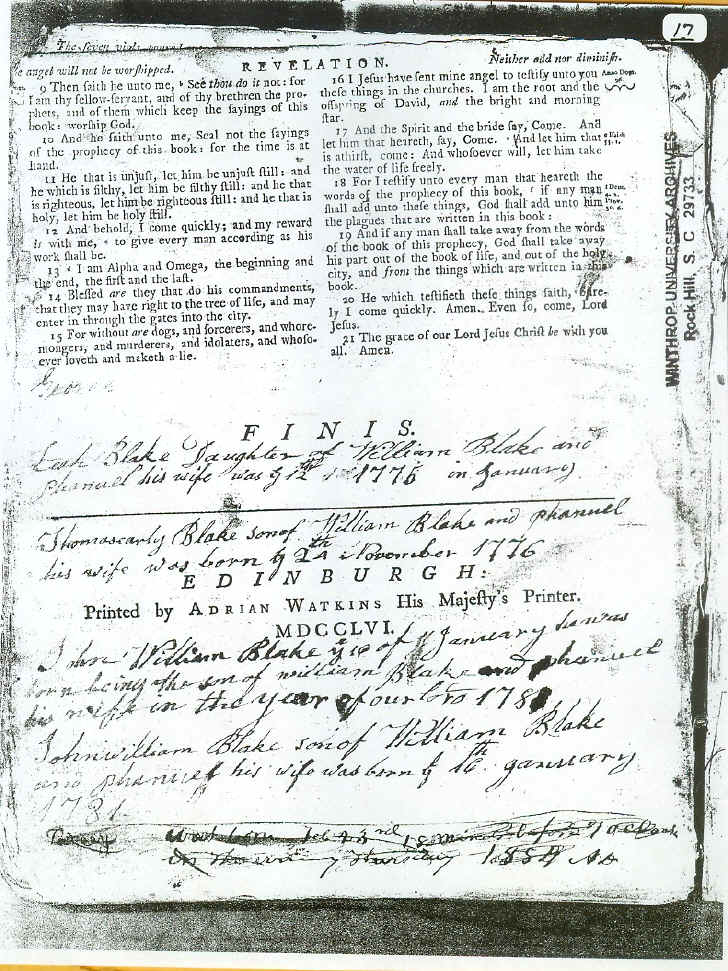 17
The seven
REVELATION.
Neither add nor diminish.
e angel will not be worshipped.
9 Then saith he unto me, See thou do it not: for
I am thy fellow-servant, and of thy brethren the pro-
phets, and of them which keep the sayings of this
book: worship God.
10 And he saith unto me, Seal not the sayings
of the prophecy of this book: for the time is at
hand.
11 He that is unjust, let him be unjust still: and
he which is filthy, let him be filthy still: and he that
is righteous, let him be righteous still: and he that is
holy, let him be holy still.
12 And behold, I come quickly; and my reward
is with me, to give every man according as his
work shall be.
13 I am Alpha and Omega, the beginning and
the end, the first and the last.
14 Blessed are they that do his commandments,
that they may have right to the tree of life, and may
enter in through the gates into the city.
15 For without are dogs, and sorcerers, and whore-
mongers, and murderers, and idolaters, and whoso-
ever loveth and maketh a lie.
16 I Jesus have sent mine angel to testify unto you
these things in the churches. I am the root and the
offspring of David, and the bright and morning
star.
17 And the Spirit and the bride say, Come. And
let him that heareth, say, Come. And let him that
is athirst, come: And whosoever will, let him take
the water of life freely.
18 For I testify unto every man that heareth the
words of the prophecy of this book, if any man
shall add unto these things, God shall add unto him
the plagues that are written in this book:
19 And if any man shall take away from the words
of the book of this prophecy, God shall take away
his part out of the book of life, and out of the holy
city, and from the things which are written in this
book.
20 He which testifieth these things saith, Sure-
ly I come quickly. Amen. Even so, come, Lord
Jesus.
21 The grace of our Lord Jesus Christ be with you
all. Amen.
Anno Dom.
WINTHROP UNIVERSITY ARCHIVES
Rock Hill, S C 29733
George
FINIS.
Leah Blake Daughter of William Blake and
phanuel his wife was 1776 in January
Thomascarly Blake son of William Blake and phanuel
his wife was born y 24th November 1776
EDINBURGH:
Printed by ADRIAN WATKINS His Majesty's Printer.
MDCCLVI.
John William Blake of January he was
born being the son of william Blake and phanuel
his wife in the year of our 1781
Johnwilliam Blake son of William Blake
and phanuel his wife was born y 16th january
1781.
born 1 o Clock
thursday 1884 AD